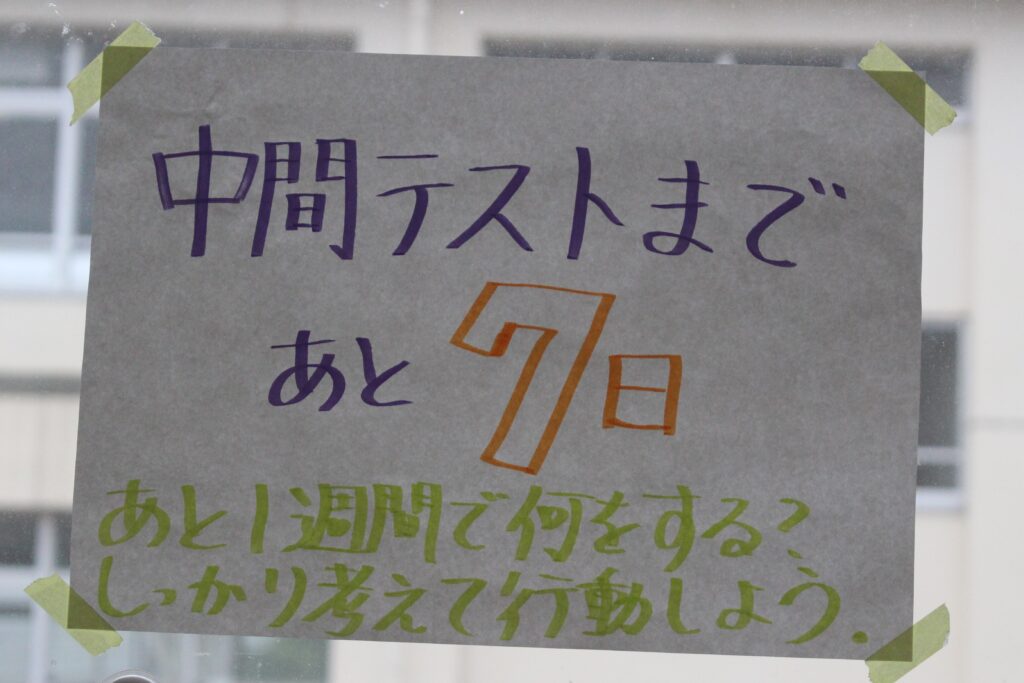 中間テストまで
あと7日
あと1週間で何をする?
しっかり考えて行動しよう.